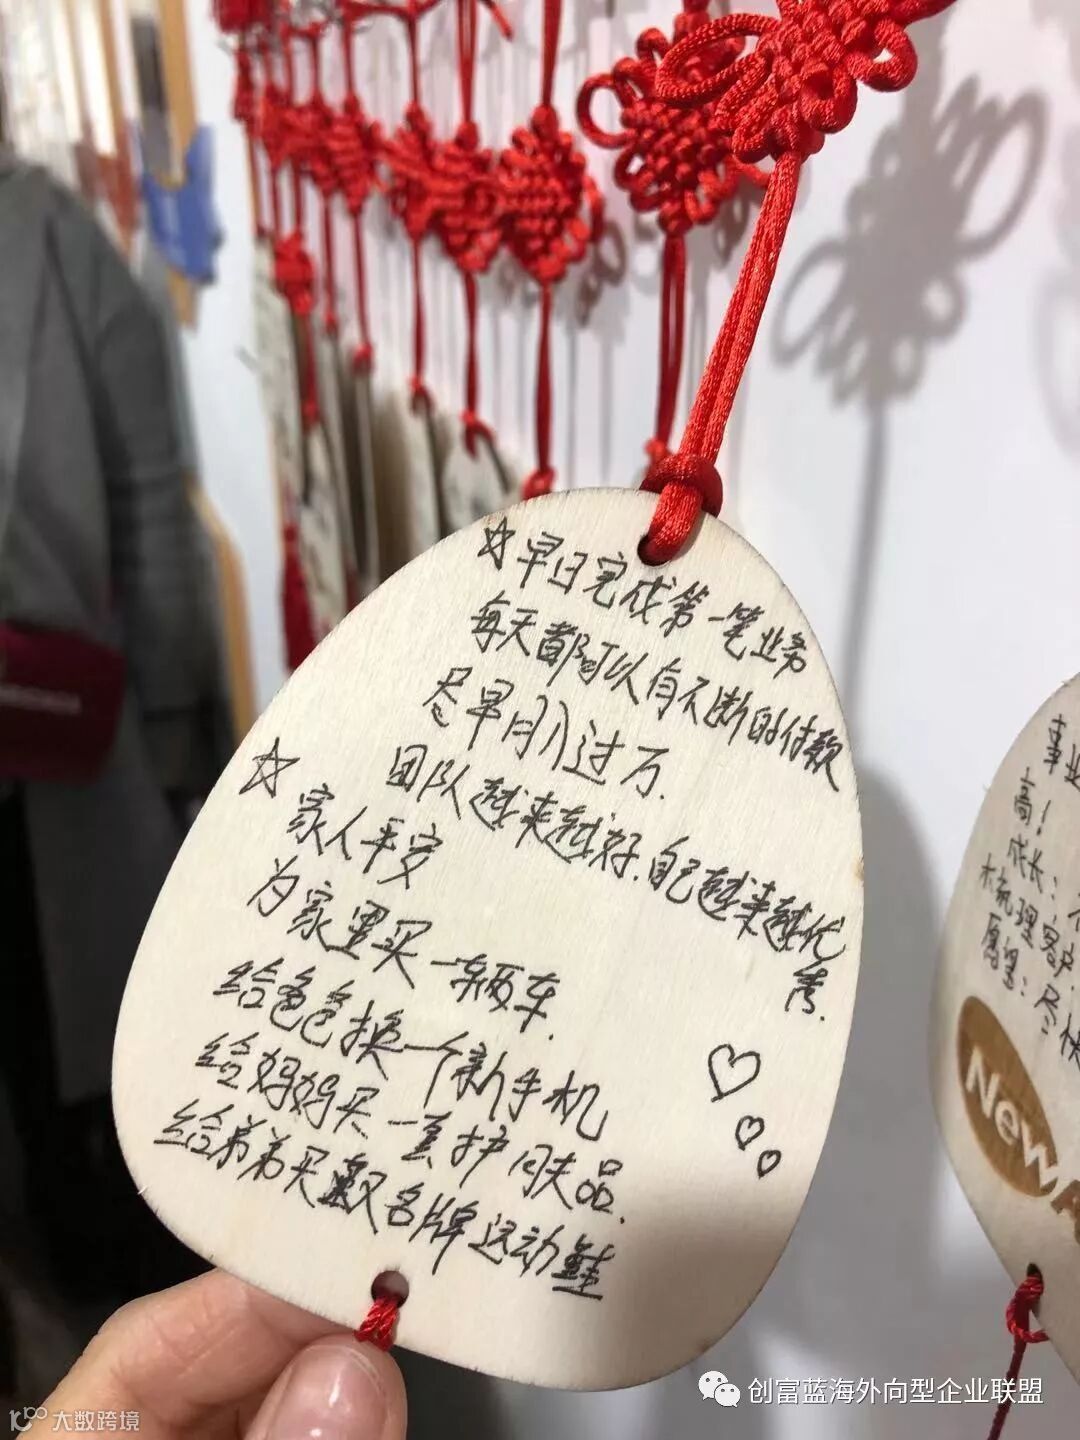 ☆早日完成第一笔业务
每天都可以有不断的付款
尽早月入过万.
团队越来越好.自己越来越优
秀.
☆家人平安
为家里买一辆车.
给爸爸换一个新手机
给妈妈买一套护肤品.
给弟弟买双名牌运动鞋
事业
高!
成长:
梳理客户
愿望:尽快
New
创富蓝海外向型企业联盟
大数跨境